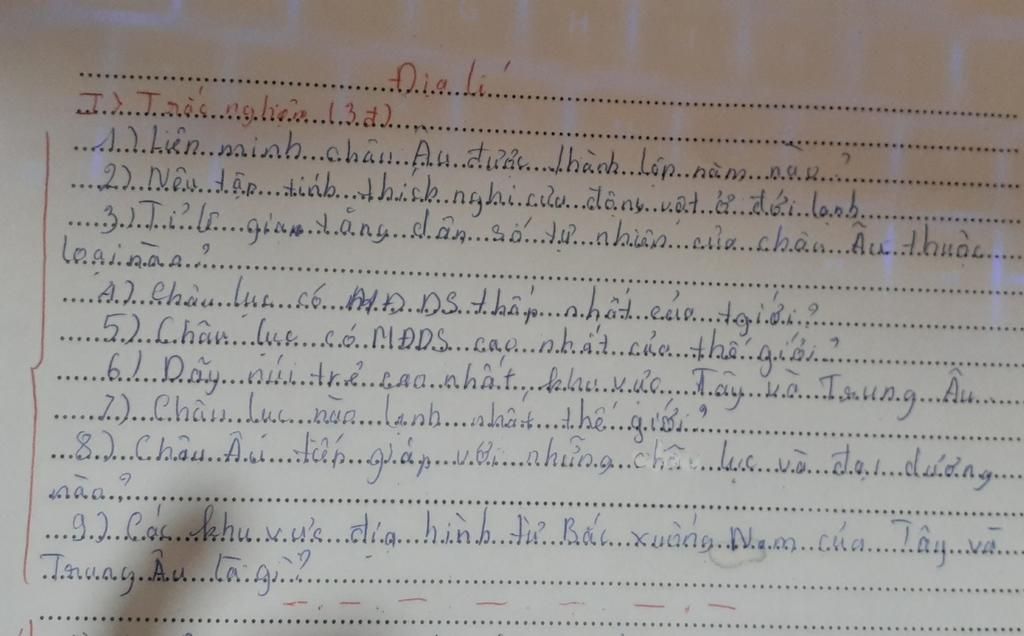 Địa lí
I). Trắc nghiệm (3đ)
1.) Liên minh châu Âu được thành lập năm nào?
2) Nêu tập tính thích nghi của động vật ở đới lạnh
3.) Tỉ lệ gia tăng dân số tự nhiên của châu Âu thuộc
loại nào?
4.) Châu lục có MĐDS thấp nhất của tgiới?
5.) Châu lục có MĐDS cao nhất của thế giới?
6.) Dãy núi trẻ cao nhất khu vực Tây và Trung Âu
7.) Châu lục nào lạnh nhất thế giới?
8.) Châu Âu tiếp giáp với những châu lục và đại dương
nào?
9.) Các khu vực địa hình từ Bắc xuống Nam của Tây và
Trung Âu là gì?